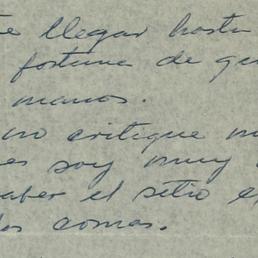 te llegar hasta
fortuna de que
manos.
no critique mi
es soy muy
saber el sitio e
las comas.